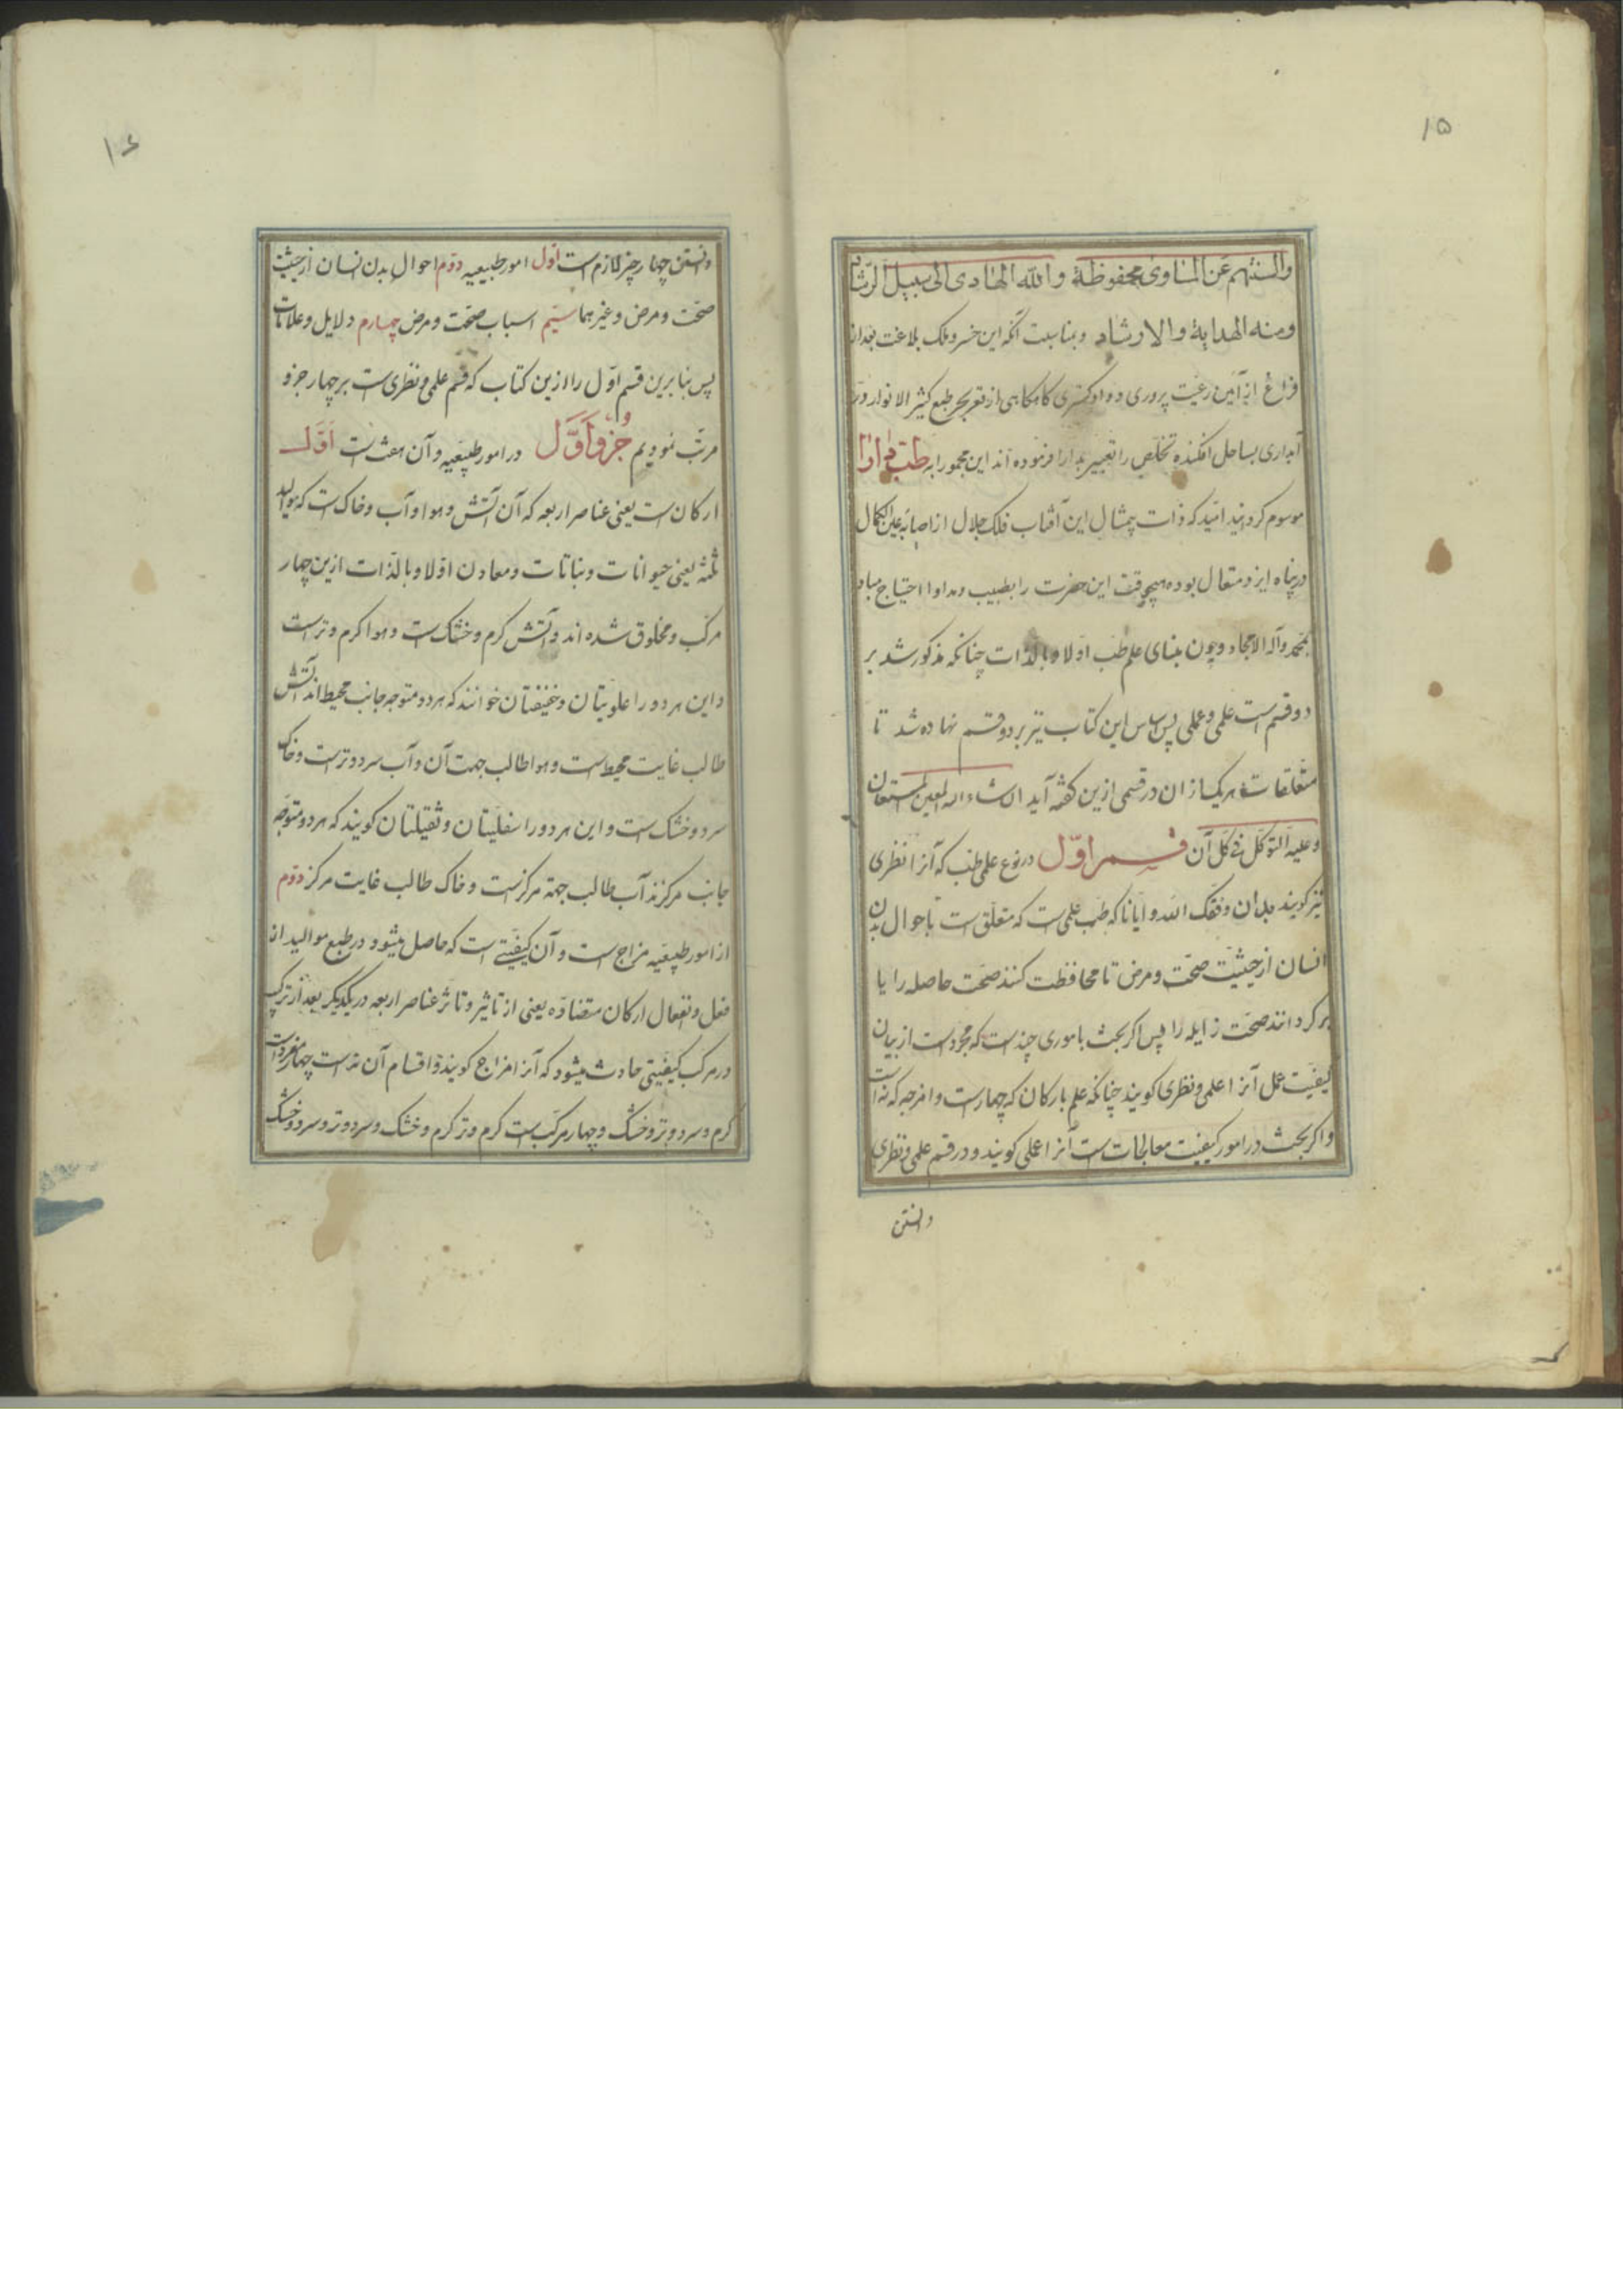 ۱۵
والسنتهم عن المساوی محفوظة والله الهادی الی سبیل الرشاد
ومنه الهدایة والارشاد وبمناسبت آنکه این خسرو ملک بلاغت بعد از
فراغ از آیین رعیت پروری و داد کستری کاهکاهی از قعر بحر طبع کثیر الانوار در
آبداری بساحل افکنده تخلص را تعبیر بدارا فرموده اند این مجموعه را به طب دارا
موسوم کردانید امید که ذات بیمثال این آفتاب فلک جلال از اصابه عین الکمال
در پناه ایزد متعال بوده هیچوقت این حضرت را بطبیب و مداوا احتیاج مباد
بمحمد وآله الامجاد و چون بنای علم طب اولا و بالذات چنانکه مذکور شد بر
دو قسم است علمی و عملی پس اساس این کتاب نیز بر دو قسم نهاده شد تا
متعلقات هر یک از ان در قسمی ازین کفته آید ان شاء الله المعین المستعان
وعلیه التوکل فی کل آن قسم اوّل در نوع علمی طب که آنرا نظری
نیز کویند بدان وفقک الله و ایانا که طب علمی است که متعلق است باحوال بدن
انسان از حیثیت صحت و مرض تا محافظت کنند صحت حاصله را یا
بر کردانند صحت زایله را پس اکر بحث باموری چند است که مجرد است از بیان
کیفیت عمل آنرا علمی و نظری کویند چنانکه علم بارکان که چهار است و امزجه که نه است
و اکر بحث در امور کیفیت معالجات است آنرا عملی کویند و در قسم علمی و نظری
دانستن
۱۶
دانستن چهار چیز لازم است اول امور طبیعیه دوم احوال بدن انسان از حیثیت
صحت و مرض و غیر هما سیم اسباب صحت و مرض چهارم دلایل و علامات
پس بنا برین قسم اول را ازین کتاب که قسم علمی و نظری است بر چهار جزو
مرتب نمودیم جزو اوّل در امور طبیعیه و آن هفت است اوّل
ارکان است یعنی عناصر اربعه که آن آتش و هوا و آب و خاک است که موالید
ثلثه یعنی حیوانات و نباتات و معادن اولا و بالذات ازین چهار
مرکب و مخلوق شده اند و آتش کرم و خشک است و هوا کرم و تر است
و این هر دو را علویتان و خفیفتان خوانند که هر دو متوجه جانب محیط اند آتش
طالب غایت محیط است و هوا طالب جهت آن و آب سرد و تر است و خاک
سرد و خشک است و این هر دو را سفلیتان و ثقیلتان کویند که هر دو متوجه
جانب مرکزند آب طالب جهة مرکز است و خاک طالب غایت مرکز دوم
از امور طبیعیه مزاج است و آن کیفیتی است که حاصل میشود در طبع موالید از
فعل و انفعال ارکان متضاده یعنی از تاثیر و تاثر عناصر اربعه در یکدیکر بعد از ترکیب
در مرکب کیفیتی حادث میشود که آنرا مزاج کویند و اقسام آن نه است چهار مفرد است
کرم و سرد و تر و خشک و چهار مرکب است کرم و تر کرم و خشک و سرد و تر و سرد و خشک